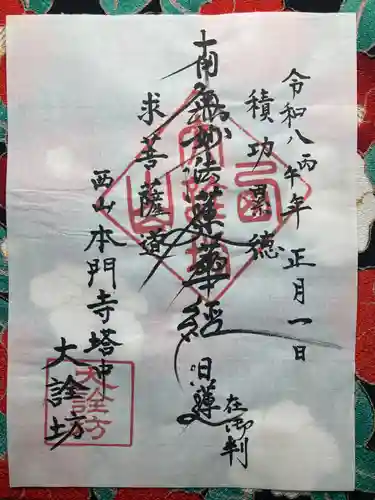 令和八丙午年 正月一日
積功累徳
南無妙法蓮華経
日蓮
在御判
求菩薩道
西山本門寺塔中
大詮坊
大詮坊